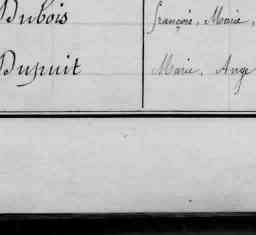 Dubois françoise, Marie,
Dupuit Marie, Ange